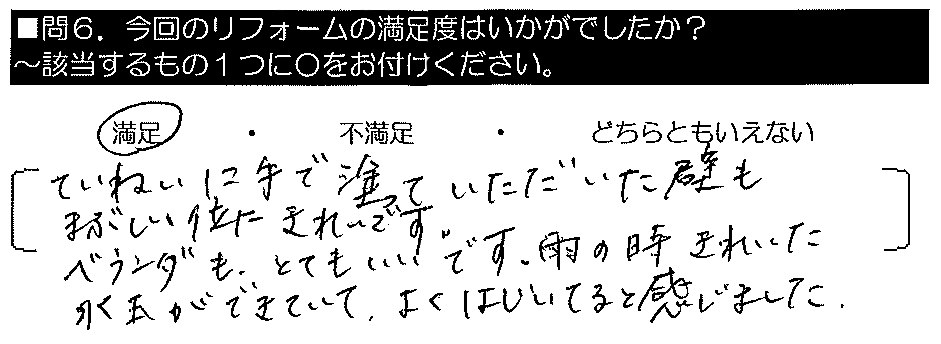 ■問6．今回のリフォームの満足度はいかがでしたか？
～該当するもの1つに○をお付けください。
満足 ・ 不満足 ・ どちらともいえない
ていねいに手で塗っていただいた壁も
まぶしい位にきれいです。
ベランダも、とてもいいです。雨の時きれいた
水玉ができていて、よくはじいてると感じました.